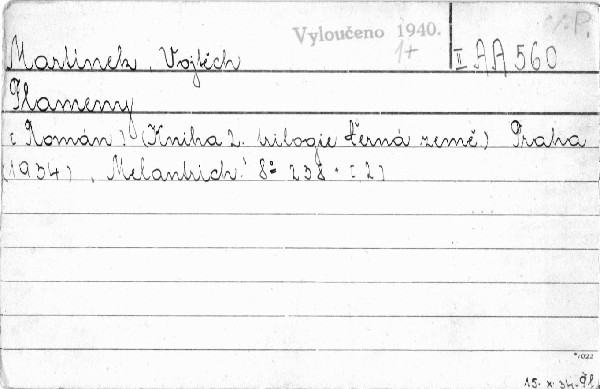 Vyloučeno 1940.
1+
II AA 560
Martínek, Vojtěch
Plameny
(Román) (Kniha 2. trilogie Černá země) Praha
(1934), Melantrich. 8° 238 + [2]
*1022
15. X. 34.